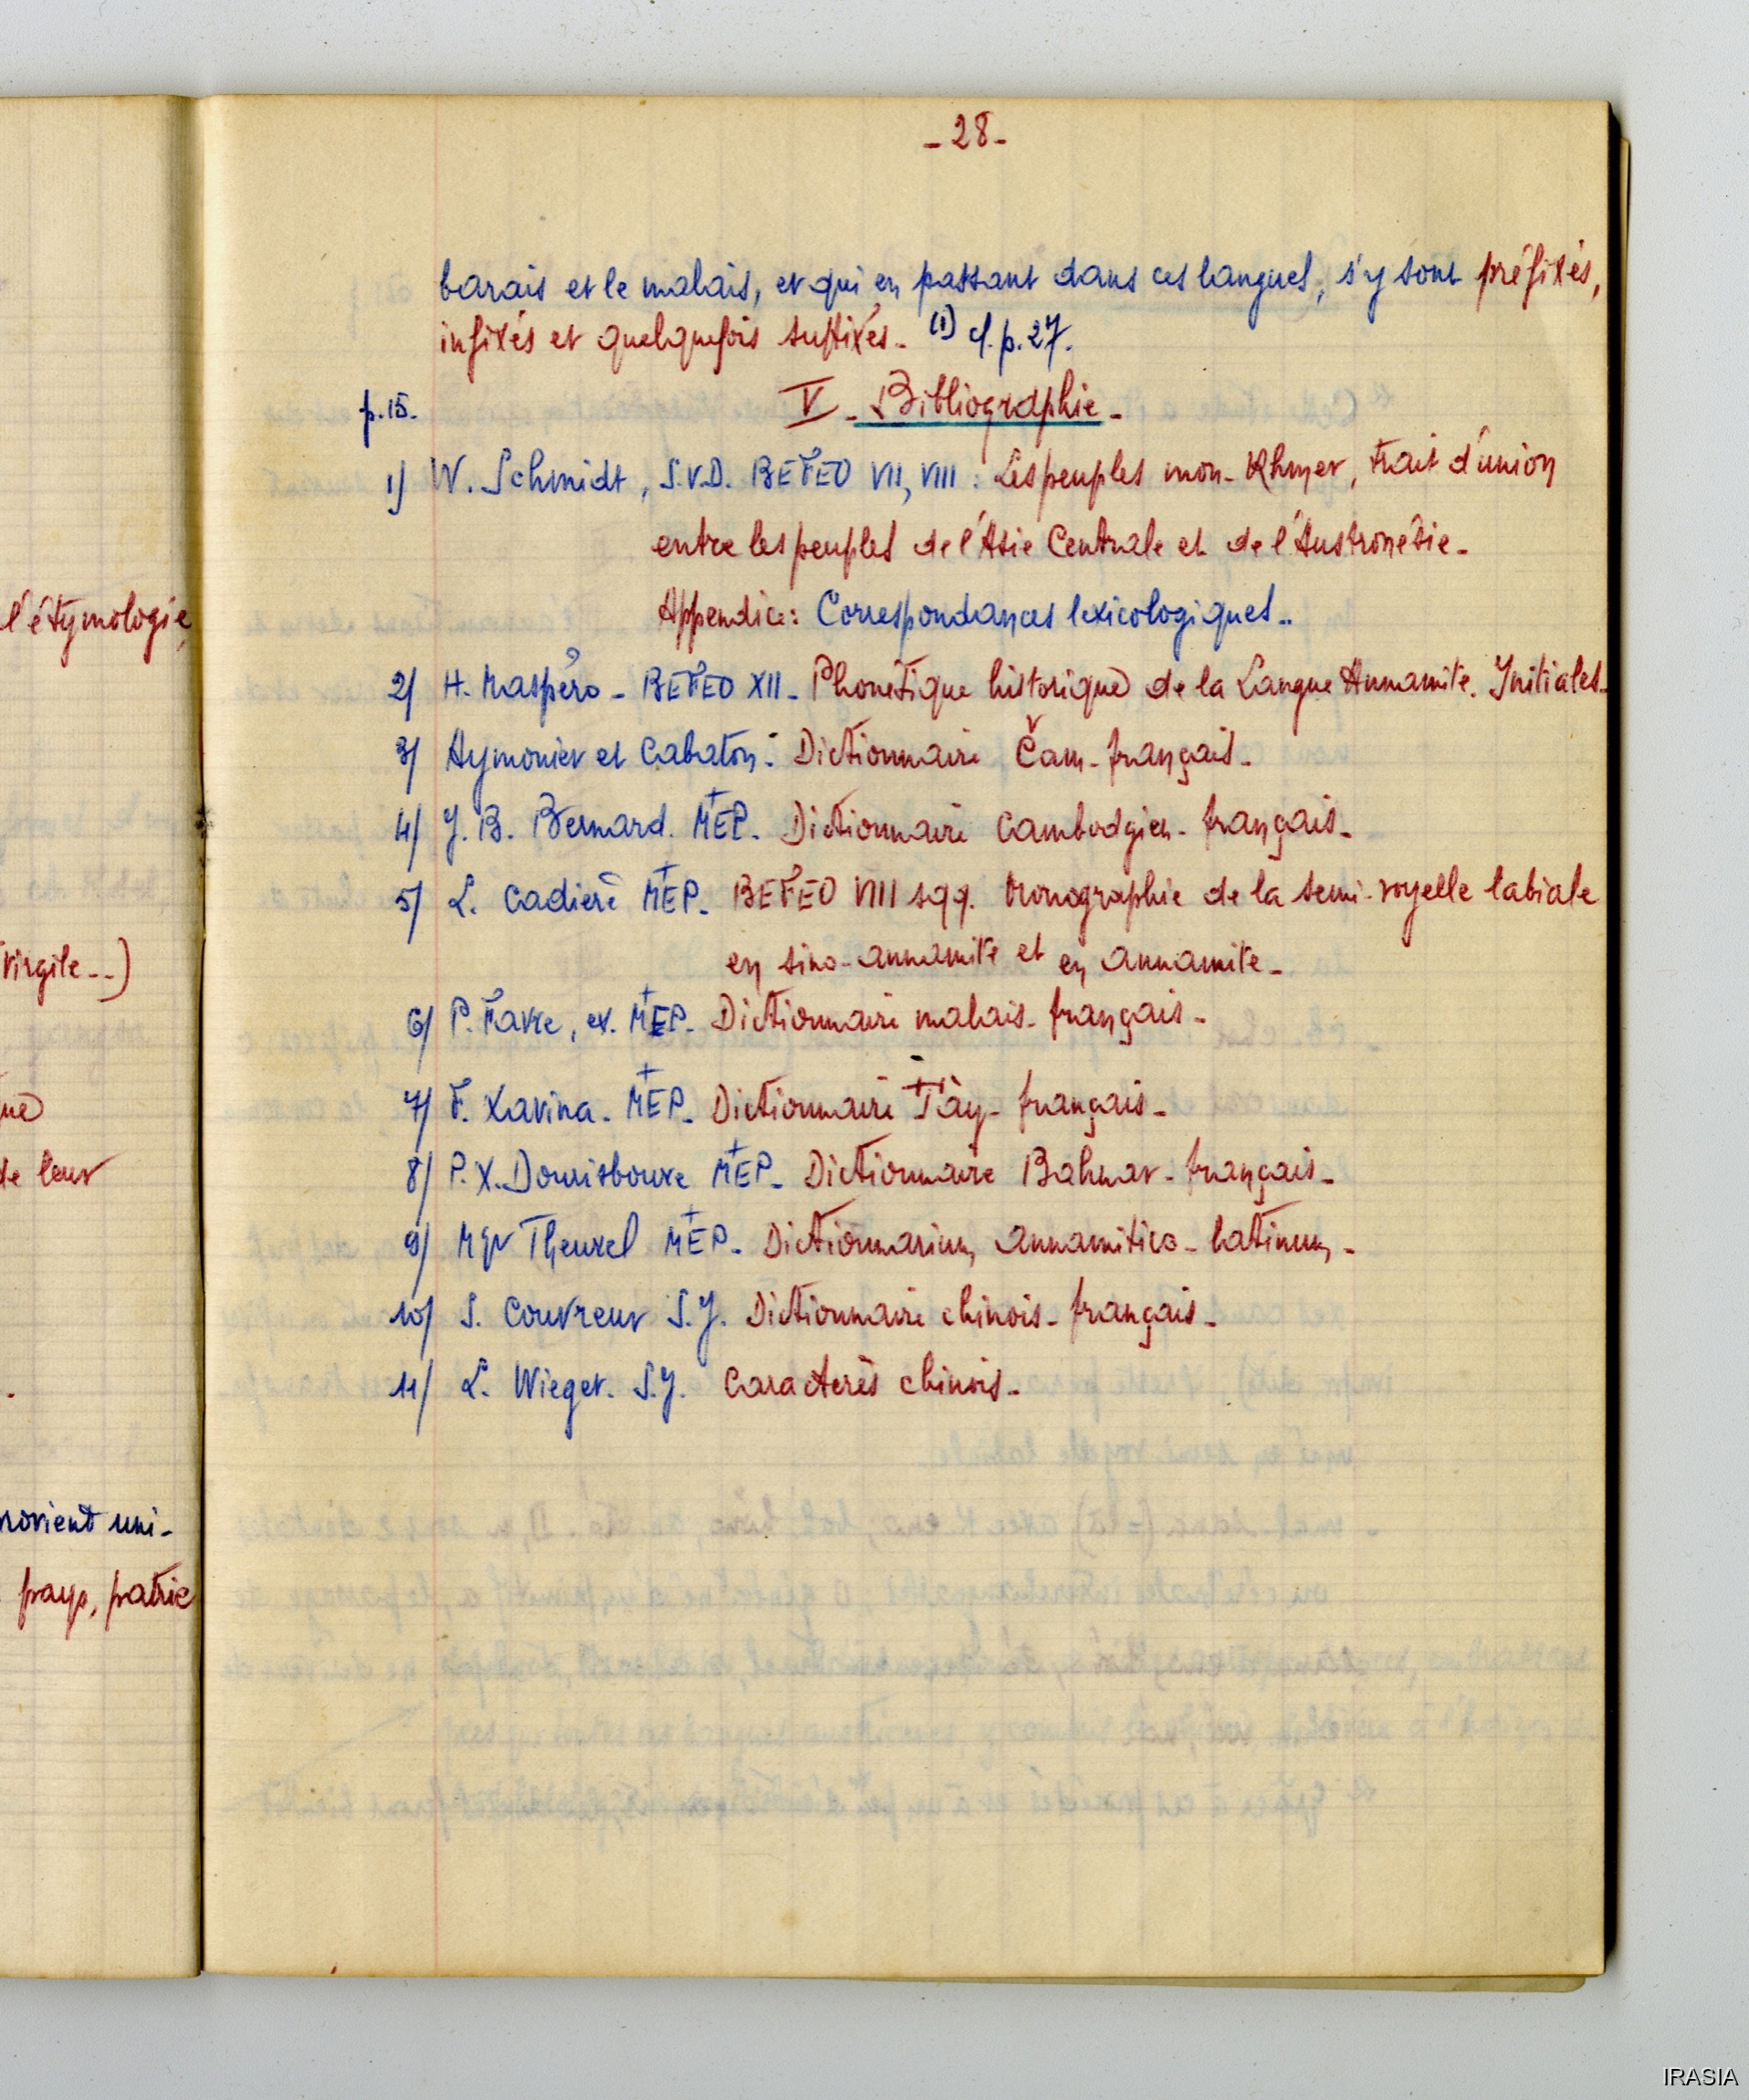 - 28 -
barais et le malais, et qui en passant dans ces langues, s'y sont préfixés,
infixés et quelquefois suffixés. (1) cf. p. 27.
p. 15. V - Bibliographie -
1) W. Schmidt, S.V.D. BEFEO VII, VIII : Les peuples mon-Khmer, trait d'union
entre les peuples de l'Asie Centrale et de l'Austronésie.
Appendice : Correspondances lexicologiques..
2) H. Maspéro - BEFEO XII - Phonétique historique de la Langue Annamite. Initiales.
3) Aymonier et Cabaton. Dictionnaire Čam-français.
4) J. B. Bernard. MEP. Dictionnaire Cambodgien-français.
5) L. Cadière MEP. BEFEO VIII sqq. Monographie de la semi-voyelle labiale
en sino-annamite et en annamite.
6) P. Favre, ex. MEP. Dictionnaire malais-français.
7) F. Xavina. MEP. Dictionnaire Tày-français.
8) P. X. Dourisboure MEP. Dictionnaire Bahnar-français.
9) Mgr Theurel MEP. Dictionnarium annamitico-latinum.
10) S. Couvreur S.J. Dictionnaire chinois-français.
11) L. Wieger. S.J. Caractères chinois.
l'étymologie
(Virgile --)
de leur
provient uni-
pays, patrie
IRASIA